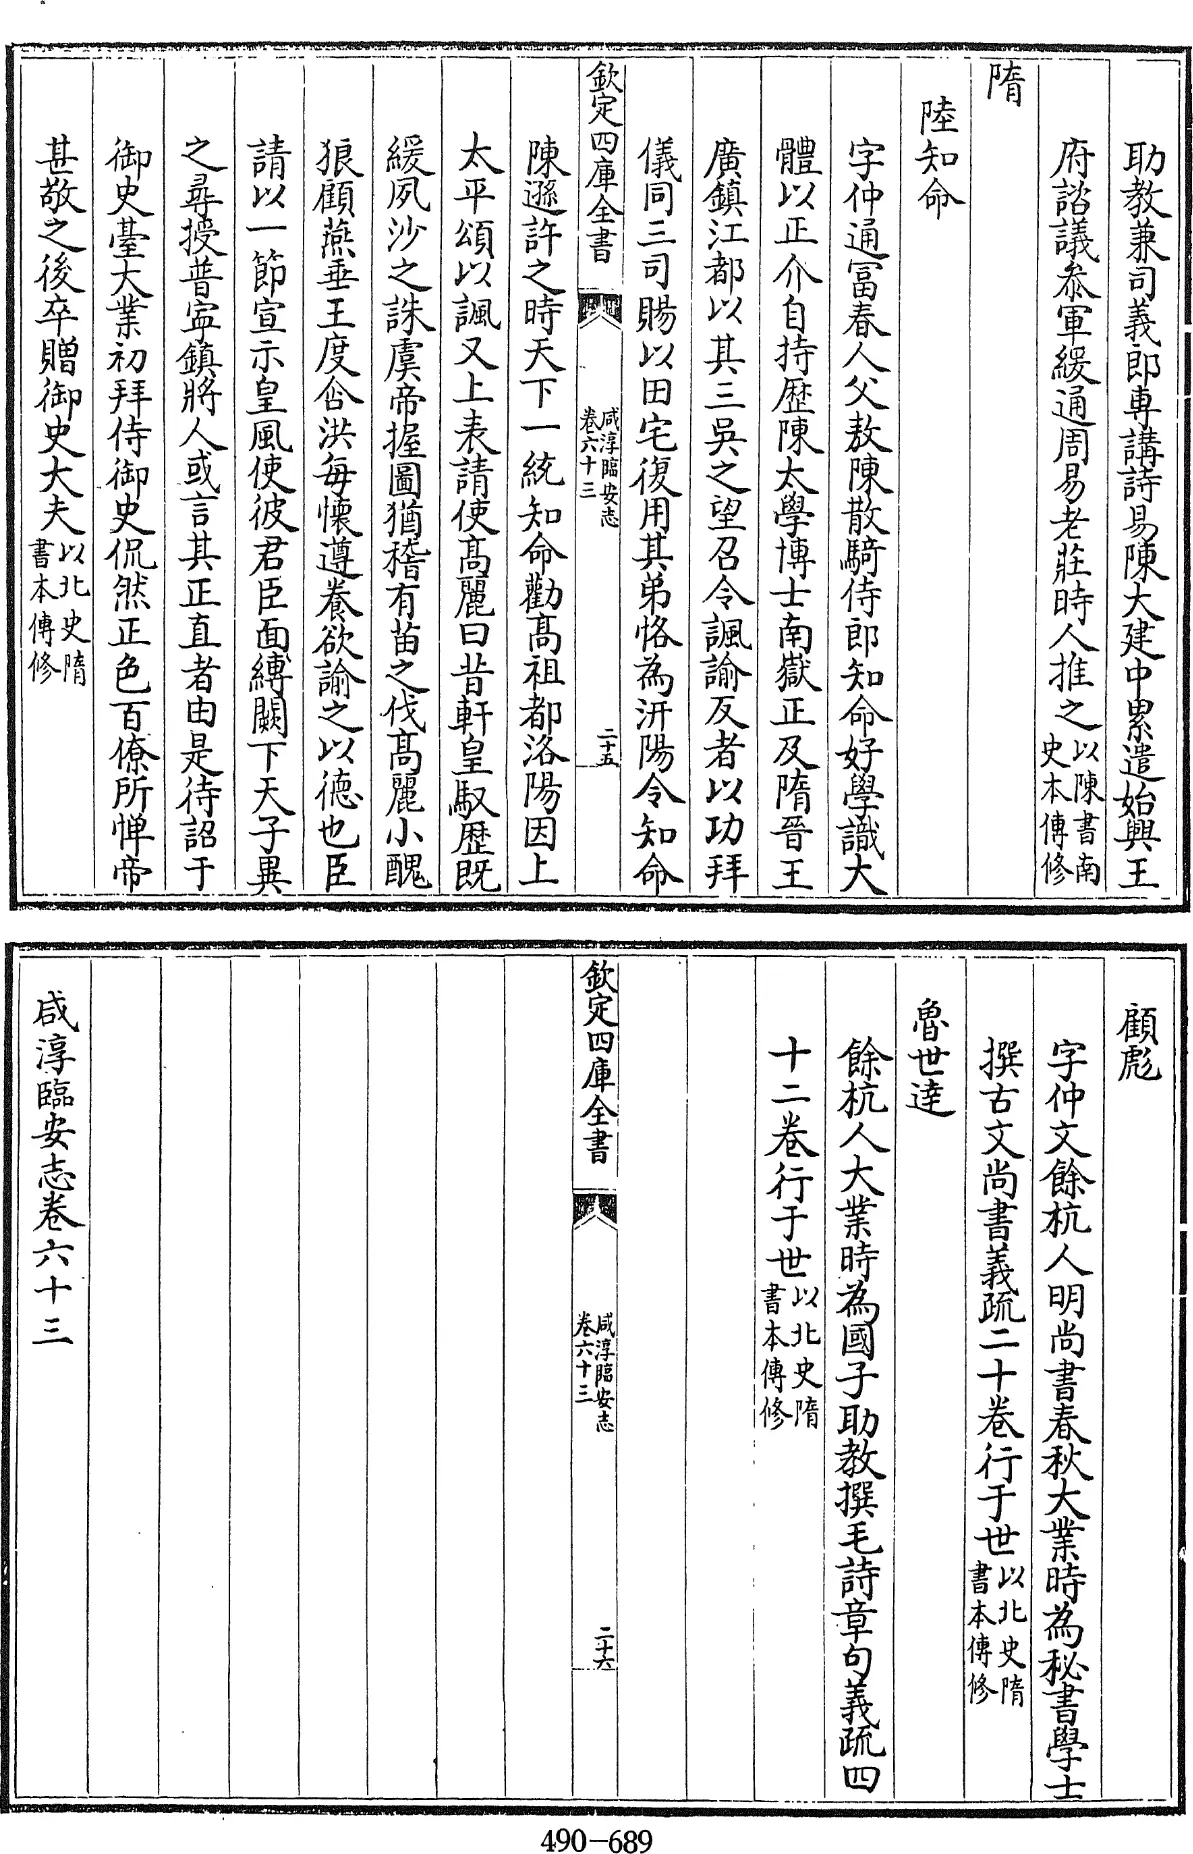 助教兼司義郎専講詩易陳大建中累遣始興王
府諮議叅軍緩通周易老莊時人推之以陳書南
史本傳修
隋
陸知命
字仲通富春人父敖陳散騎侍郎知命好學識大
體以正介自持歴陳太學博士南嶽正及隋晉王
廣鎮江都以其三吳之望召令諷諭反者以功拜
儀同三司賜以田宅復用其弟恪為汧陽令知命
欽定四庫全書
咸淳臨安志
卷六十三
二十五
陳遜許之時天下一統知命勸髙祖都洛陽因上
太平頌以諷又上表請使髙麗曰昔軒皇馭歴既
緩夙沙之誅虞帝握圖猶稽有苗之伐髙麗小醜
狼顧燕垂王度含洪每懐遵養欲諭之以德也臣
請以一節宣示皇風使彼君臣面縛闕下天子異
之尋授普寧鎮將人或言其正直者由是待詔于
御史臺大業初拜侍御史侃然正色百僚所憚帝
甚敬之後卒贈御史大夫以北史隋
書本傳修
顧彪
字仲文餘杭人明尚書春秋大業時為秘書學士
撰古文尚書義疏二十卷行于世以北史隋
書本傳修
魯世達
餘杭人大業時為國子助教撰毛詩章句義疏四
十二卷行于世以北史隋
書本傳修
欽定四庫全書
咸淳臨安志
卷六十三
二十六
咸淳臨安志卷六十三
490-689